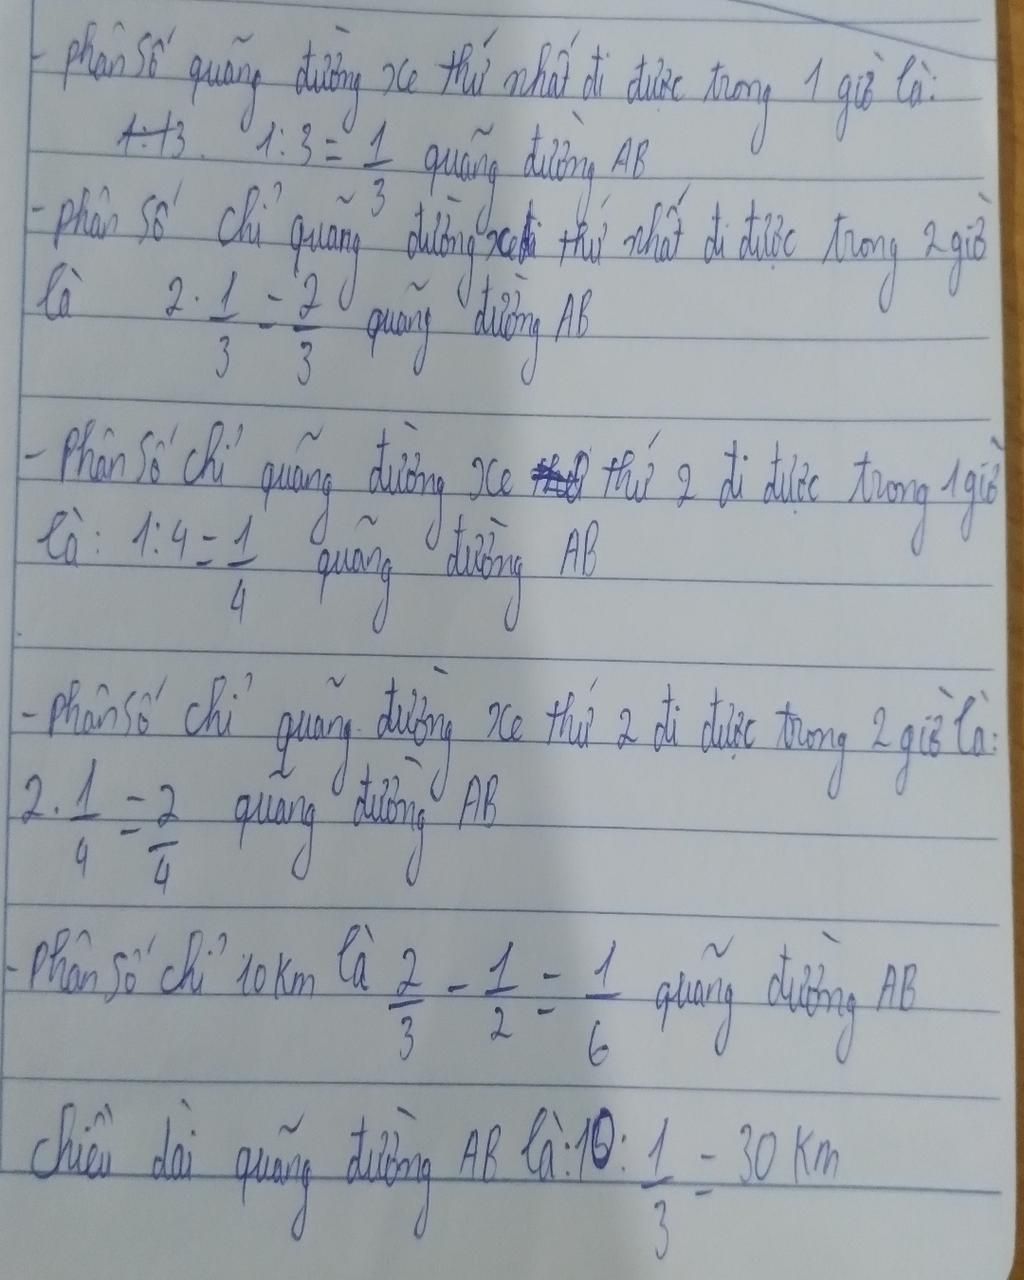 - phân số quãng đường xe thứ nhất đi được trong 1 giờ là:
1:3 = 1/3 quãng đường AB
- phân số chỉ quãng đường xe thứ nhất đi được trong 2 giờ
là 2 . 1/3 = 2/3 quãng đường AB
- Phân số chỉ quãng đường xe thứ 2 đi được trong 1 giờ
là: 1:4 = 1/4 quãng đường AB
- phân số chỉ quãng đường xe thứ 2 đi được trong 2 giờ là:
2 . 1/4 = 2/4 quãng đường AB
- Phân số chỉ 10 Km là 2/3 - 1/2 = 1/6 quãng đường AB
chiều dài quãng đường AB là: 10 : 1/3 = 30 Km